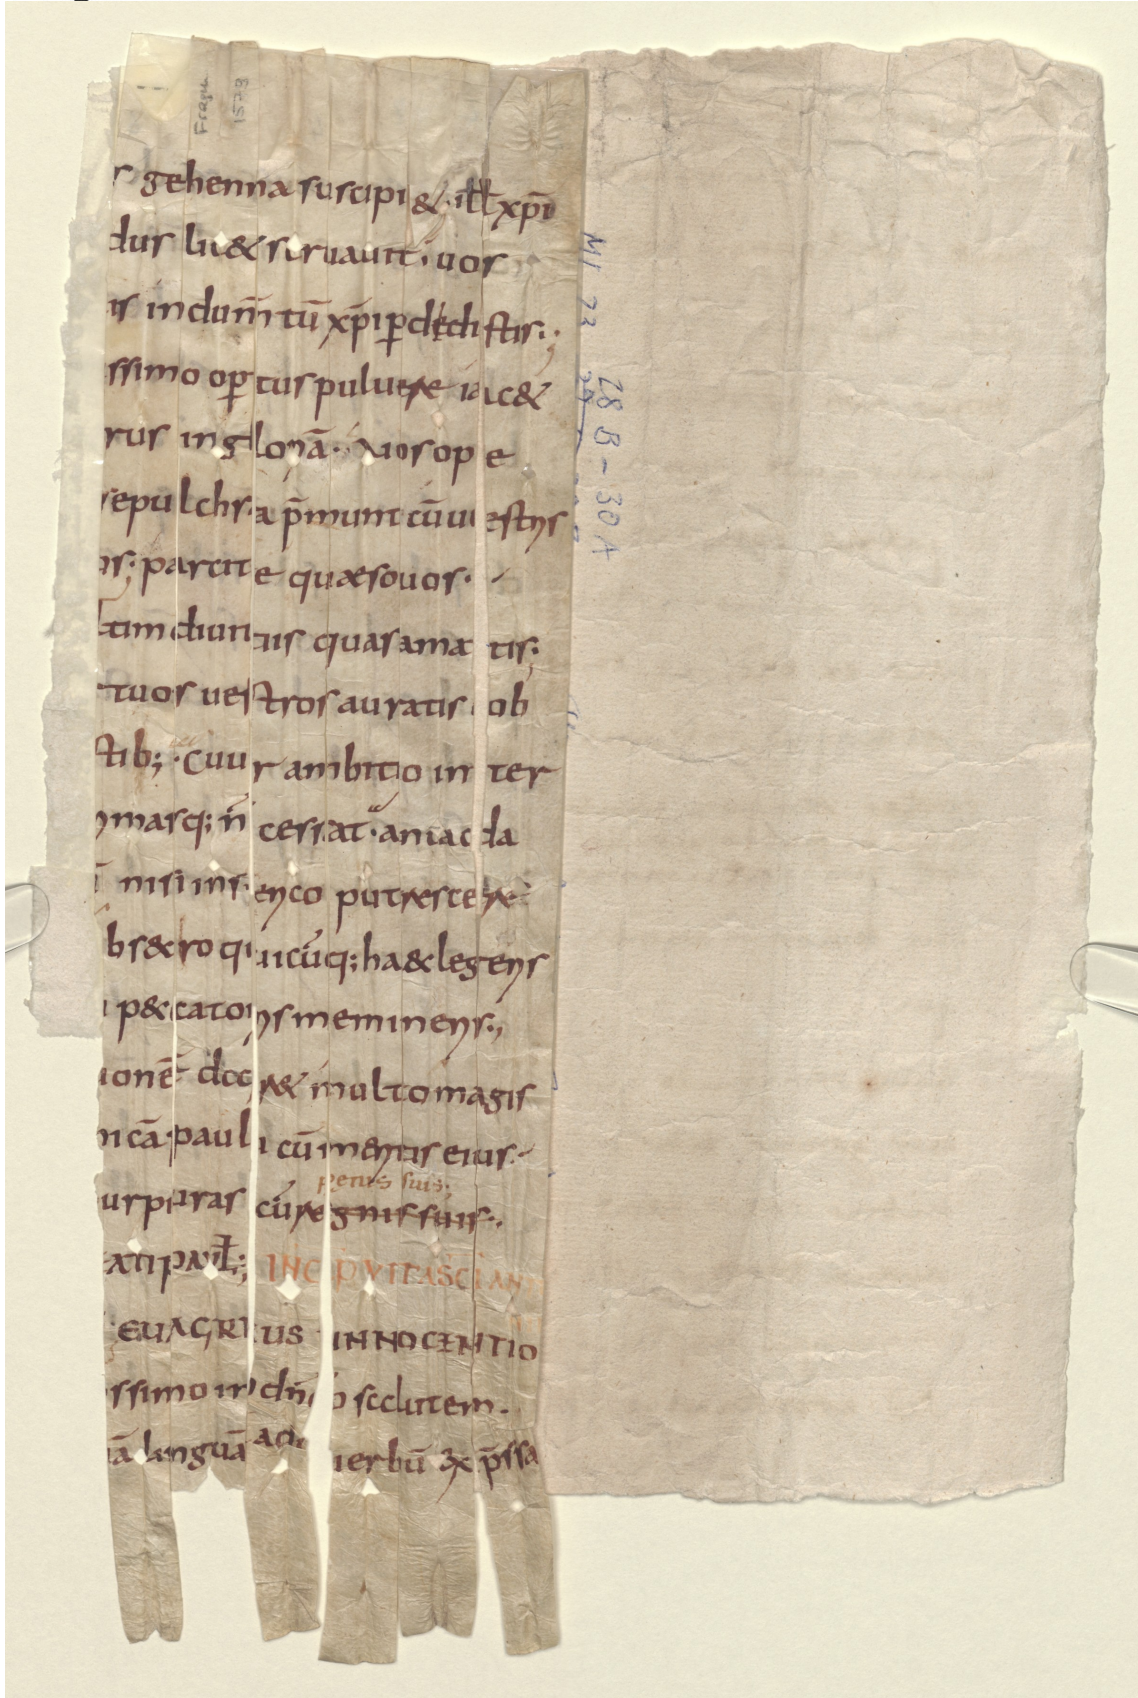 Fragm
1579
r gehenna suscipi&. ill xp̄i
dus lic& seruauit. uos
is indum̄tū xp̄i ꝑdedistis.;
ssimo oꝑtus puluere iac&
rus in gloriā. Uos ope
sepulchra p̄munt cū uestris
is; parcite quæso uos.
ltim diuitiis quas amatis;
rtuos uestros auratis ob
stib; .Cuur ambitio inter
rimasq; n̄ cessat. an cada
nisi in serico putrescere
bs&ro quicūq; haec legeris
i p&catoris memineris.,
ionē dar& multo magis
nicā pauli cū meritis eius.
regnis suis;
urpuras cū regnis suis.
ati pauli; INCP VITA SCI AN
EVAGRIUS INNOCENTIO
ssimo in dn̄o salutem.
iā linguā ad uerbū exp̄ssa
M1 73
28 B-30A